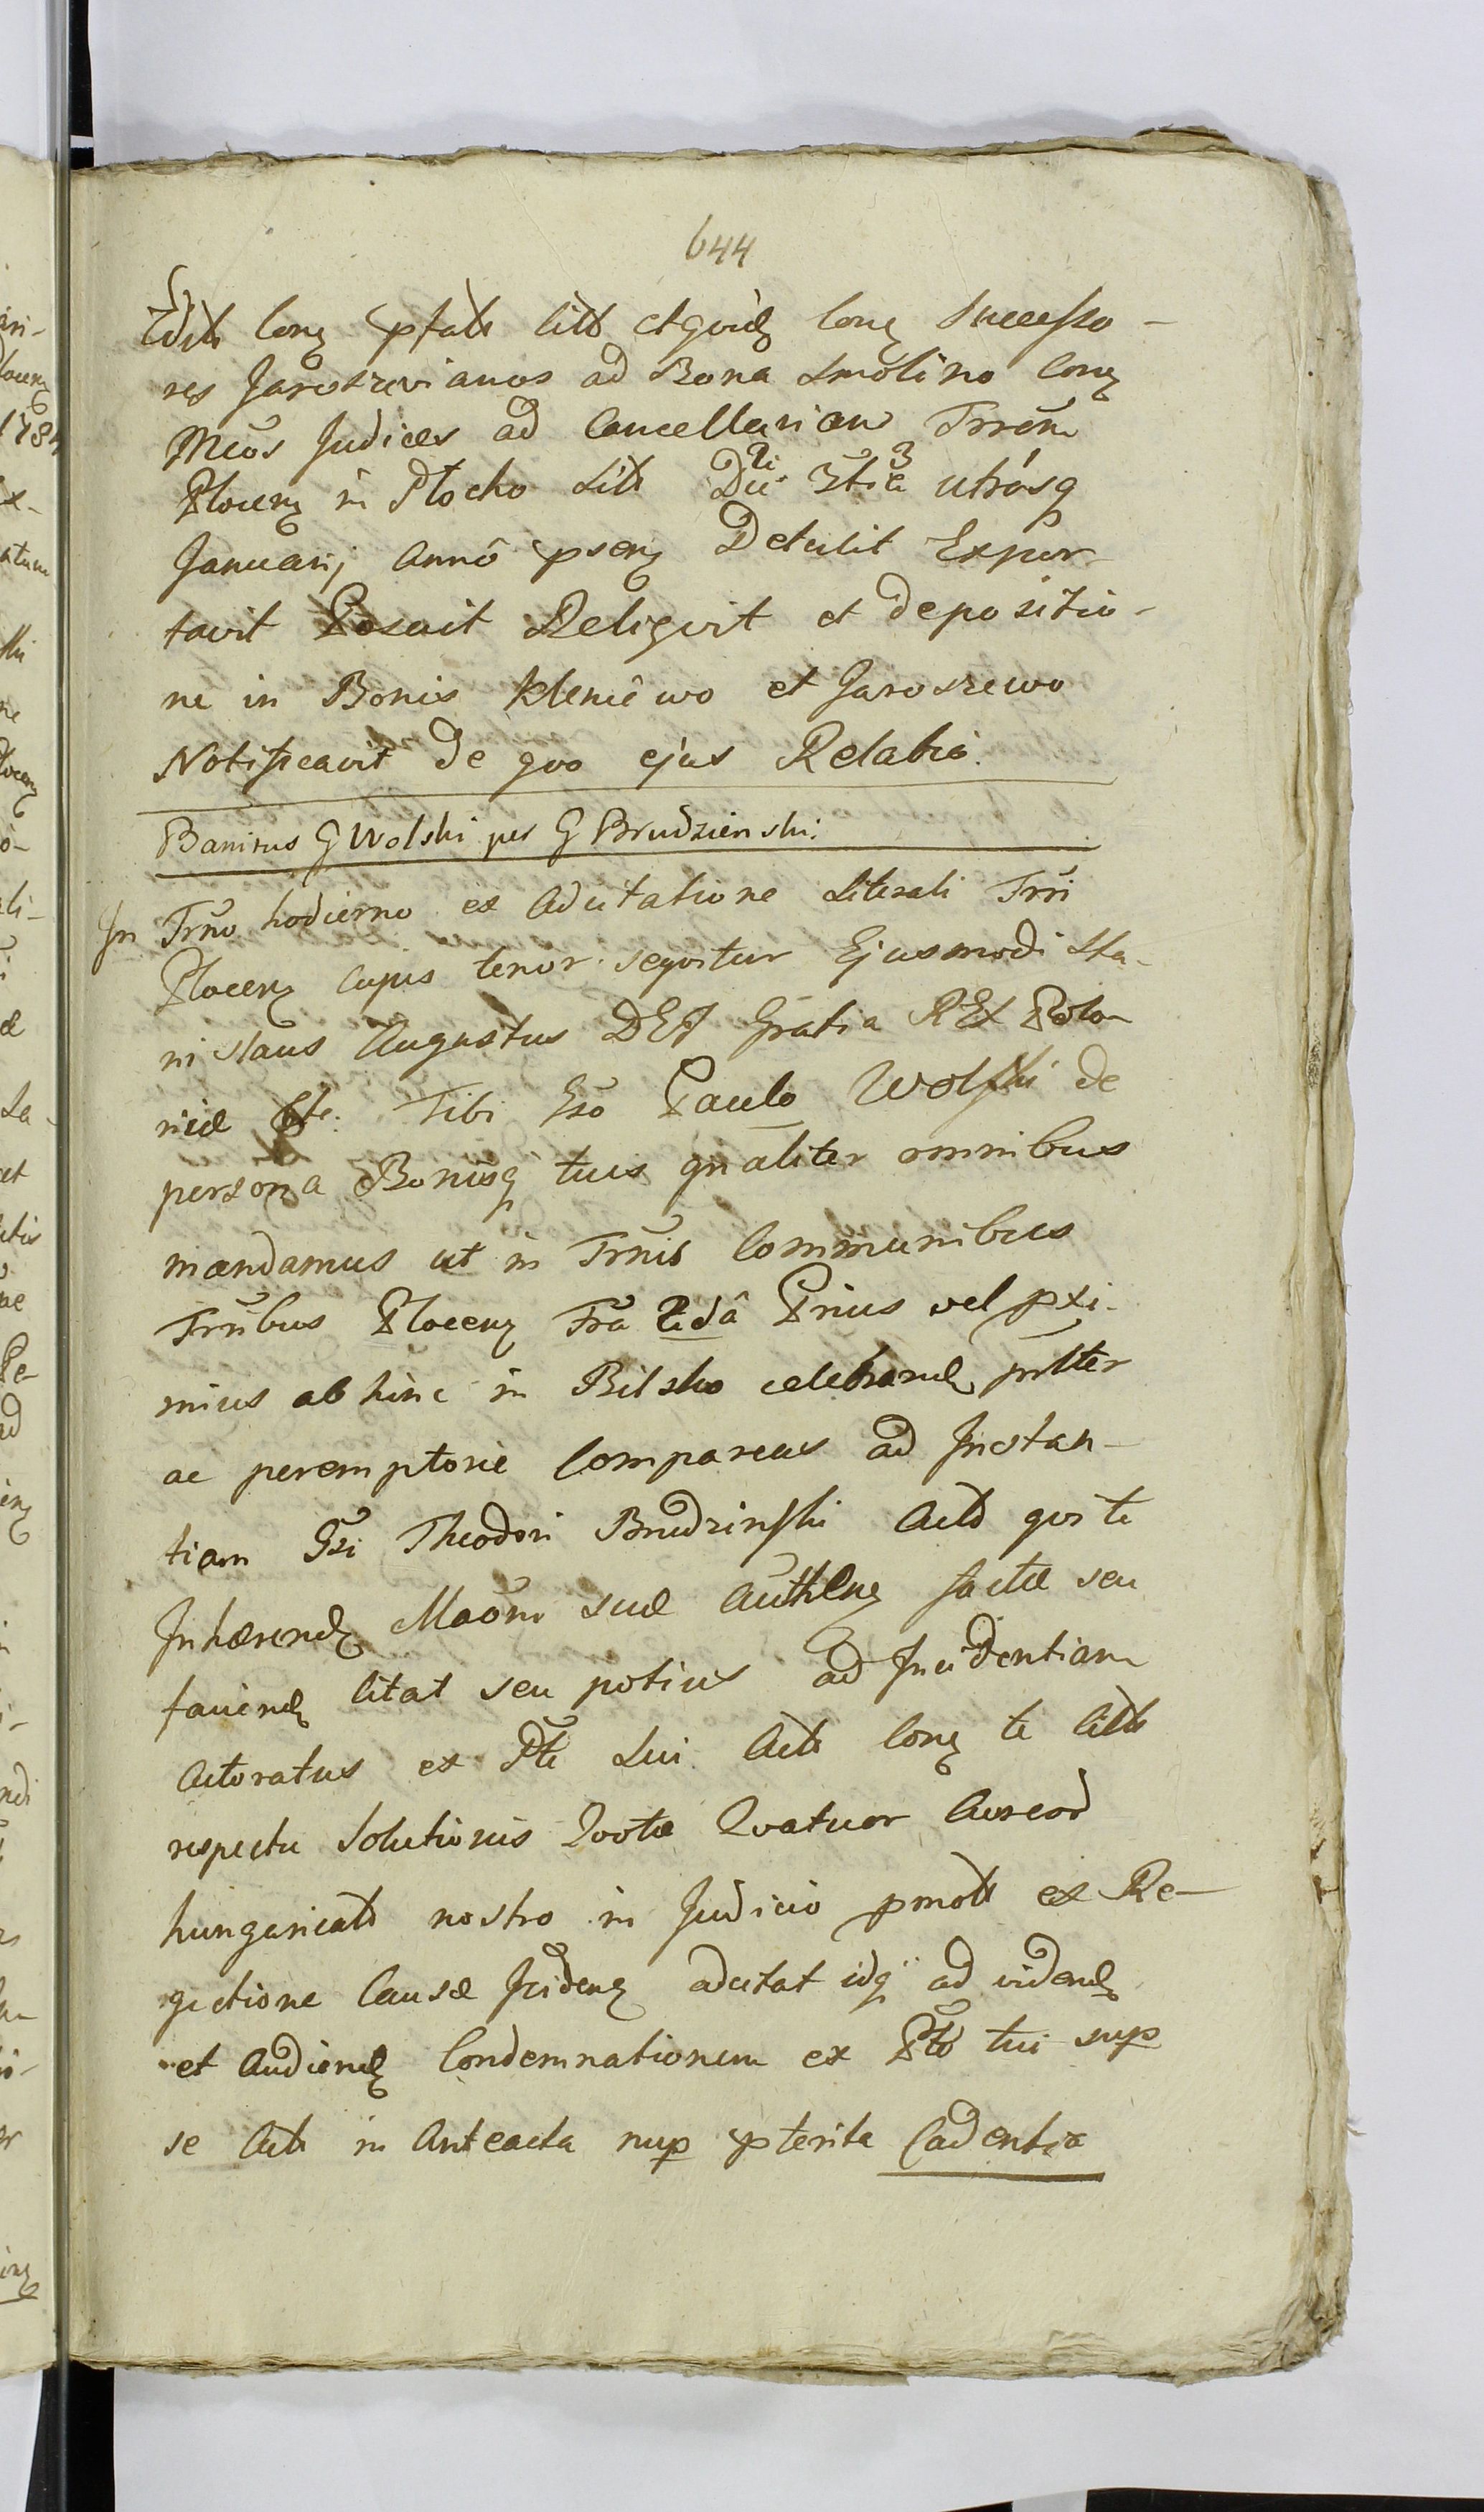 644
Edit Conẓ pfat Citt etquidẓ Conẓ Successo-
res Jaroszevianos ad Bona Smolino Conẓ
Mcos Judices ad Cancellariam Trrem
Plocenẓ in Płocko Sitt Die 3tia utrisq
Januarij Anno psenẓ Detulit Expor-
tavit Posuit Reliquit et depositio-
ne in Bonis Kleniewo et Jaroszewo
Notificavit de quo ejus Relatio.
Banitus G Wolski per G Brudzienski.
In Trno hodierno ex Adcitatione Literali Trri
Plocenẓ Cujus tenor sequitur Ejusmodi Sta-
nislaus Augustus DEI Gratia REX Polo-
niæ Etc. Tibi Gso Paulo Wolski de
persona Bonisq tuis gnaliter omnibus
mandamus ut in Trnis Communibus
Trribus Plocenẓ Fra 2dâ Prius vel pxi-
mius abhinc in Bilsko celebrandẓ psltter
ac peremptorie Compareas ad Instan-
tiam Gsi Theodori Brudzinski Actt qui te
Inhærendẓ Maom suæ Authenẓ factæ seu
faciendẓ Citat seu potius ad Incidentiam
Actoratus ex Pte Sui Actt Conẓ te Citt
respectu Solutionis Qvotæ Qvatuor Aureor
hungaricatt nostro in Judicio pmott ex Re-
jectione Causæ Incidenẓ adcitat idq ad videndẓ
et Audiendẓ Condemnationem ex Pte tui sup
se Actt in Anteacta nup pterita Cadentia